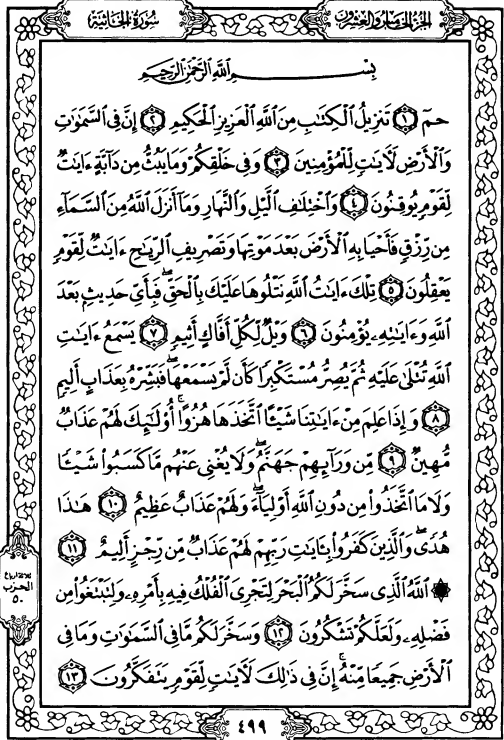 الجزء الخامس والعشرون
سورة الجاثية
بِسْمِ اللَّهِ الرَّحْمَٰنِ الرَّحِيمِ
حمٓ ١ تَنزِيلُ الْكِتَابِ مِنَ اللَّهِ الْعَزِيزِ الْحَكِيمِ ٢ إِنَّ فِي السَّمَٰوَٰتِ
وَالْأَرْضِ لَآيَٰتٍ لِّلْمُؤْمِنِينَ ٣ وَفِي خَلْقِكُمْ وَمَا يَبُثُّ مِن دَآبَّةٍ ءَايَٰتٌ
لِّقَوْمٍ يُوقِنُونَ ٤ وَاخْتِلَٰفِ الَّيْلِ وَالنَّهَارِ وَمَآ أَنزَلَ اللَّهُ مِنَ السَّمَآءِ
مِن رِّزْقٍ فَأَحْيَا بِهِ الْأَرْضَ بَعْدَ مَوْتِهَا وَتَصْرِيفِ الرِّيَٰحِ ءَايَٰتٌ لِّقَوْمٍ
يَعْقِلُونَ ٥ تِلْكَ ءَايَٰتُ اللَّهِ نَتْلُوهَا عَلَيْكَ بِالْحَقِّ ۖ فَبِأَيِّ حَدِيثٍ بَعْدَ
اللَّهِ وَءَايَٰتِهِۦ يُؤْمِنُونَ ٦ وَيْلٌ لِّكُلِّ أَفَّاكٍ أَثِيمٍ ٧ يَسْمَعُ ءَايَٰتِ
اللَّهِ تُتْلَىٰ عَلَيْهِ ثُمَّ يُصِرُّ مُسْتَكْبِرًا كَأَن لَّمْ يَسْمَعْهَا ۖ فَبَشِّرْهُ بِعَذَابٍ أَلِيمٍ
٨ وَإِذَا عَلِمَ مِنْ ءَايَٰتِنَا شَيْئًا اتَّخَذَهَا هُزُوًا ۚ أُو۟لَٰٓئِكَ لَهُمْ عَذَابٌ
مُّهِينٌ ٩ مِّن وَرَآئِهِمْ جَهَنَّمُ ۖ وَلَا يُغْنِي عَنْهُم مَّا كَسَبُوا۟ شَيْئًا
وَلَا مَا اتَّخَذُوا۟ مِن دُونِ اللَّهِ أَوْلِيَآءَ ۖ وَلَهُمْ عَذَابٌ عَظِيمٌ ١٠ هَٰذَا
هُدًى ۖ وَالَّذِينَ كَفَرُوا۟ بِـَٔايَٰتِ رَبِّهِمْ لَهُمْ عَذَابٌ مِّن رِّجْزٍ أَلِيمٌ ١١
۞ اللَّهُ الَّذِي سَخَّرَ لَكُمُ الْبَحْرَ لِتَجْرِيَ الْفُلْكُ فِيهِ بِأَمْرِهِۦ وَلِتَبْتَغُوا۟ مِن
فَضْلِهِۦ وَلَعَلَّكُمْ تَشْكُرُونَ ١٢ وَسَخَّرَ لَكُم مَّا فِي السَّمَٰوَٰتِ وَمَا فِي
الْأَرْضِ جَمِيعًا مِّنْهُ ۚ إِنَّ فِي ذَٰلِكَ لَآيَٰتٍ لِّقَوْمٍ يَتَفَكَّرُونَ ١٣
ثلاثة أرباع
الحزب
٥٠
٤٩٩